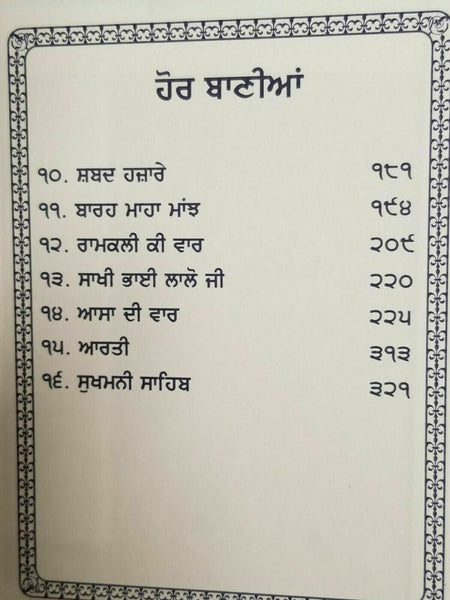 ਹੋਰ ਬਾਣੀਆਂ
੧੦. ਸ਼ਬਦ ਹਜ਼ਾਰੇ ੧੮੧
੧੧. ਬਾਰਹ ਮਾਹਾ ਮਾਂਝ ੧੯੪
੧੨. ਰਾਮਕਲੀ ਕੀ ਵਾਰ ੨੦੯
੧੩. ਸਾਖੀ ਭਾਈ ਲਾਲੋ ਜੀ ੨੨੦
੧੪. ਆਸਾ ਦੀ ਵਾਰ ੨੨੫
੧੫. ਆਰਤੀ ੩੧੩
੧੬. ਸੁਖਮਨੀ ਸਾਹਿਬ ੩੨੧